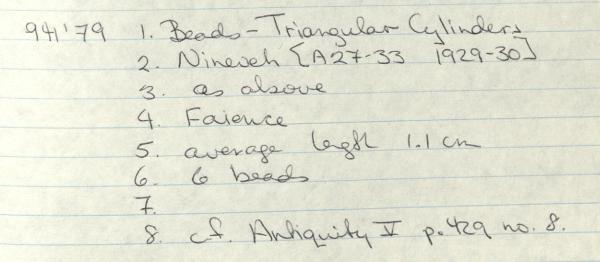 941'79 1. Beads - Triangular Cylinders
2. Nineveh [A27-33 1929-30]
3. as above
4. Faience
5. average length 1.1 cm
6. 6 beads
7.
8. cf. Antiquity V p. 429 no. 8.